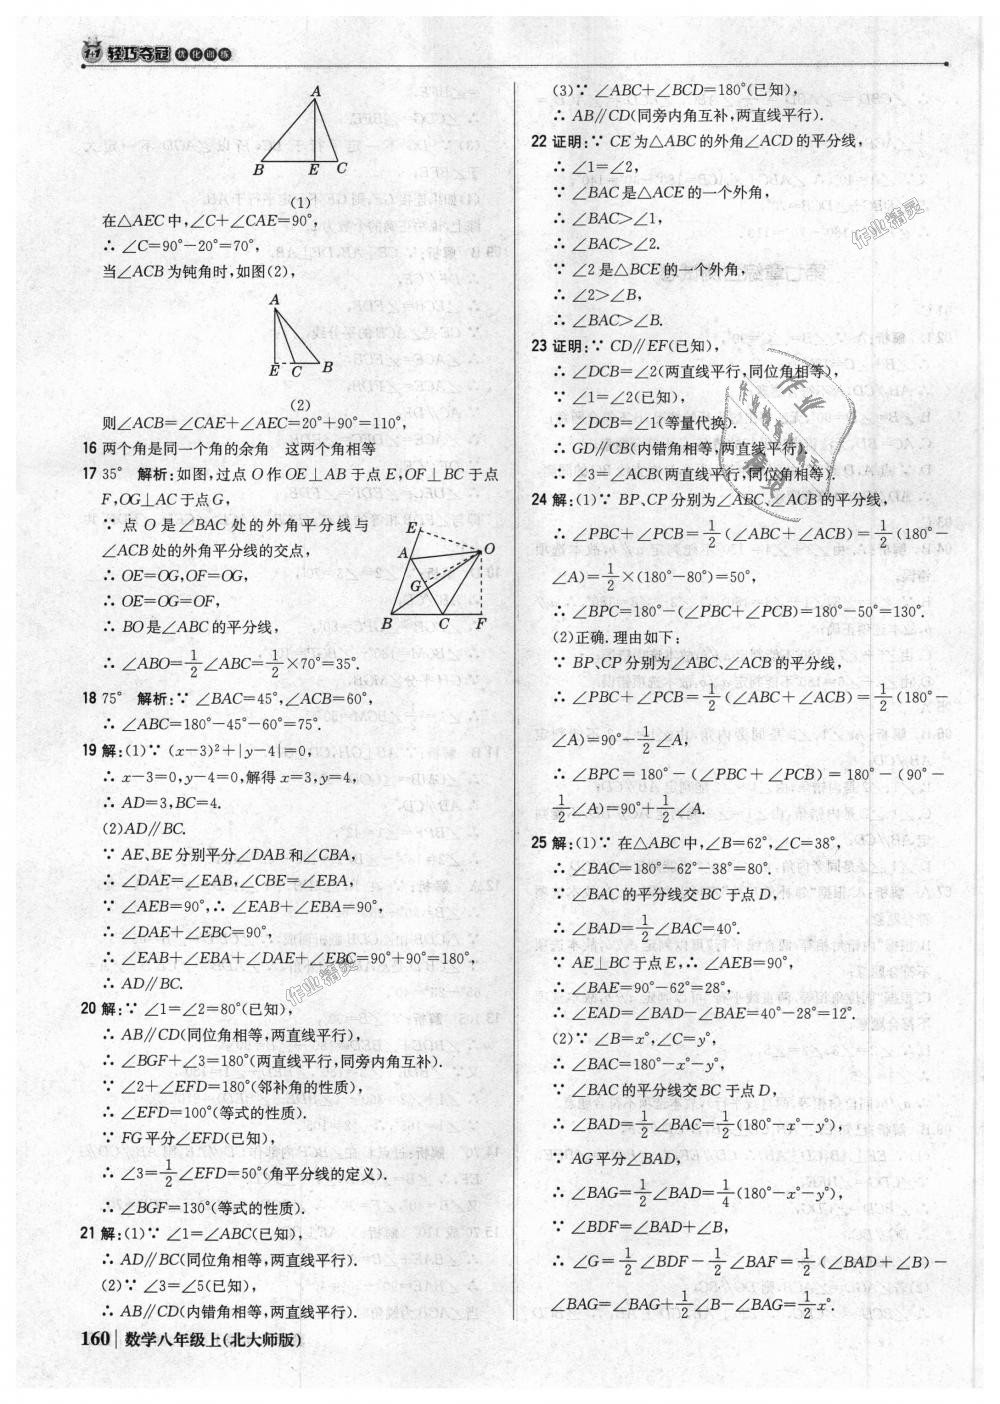 1+1 轻巧夺冠 优化训练
A
B E C
(1)
在△AEC中,∠C+∠CAE=90°,
∴ ∠C=90°-20°=70°,
当∠ACB为钝角时,如图(2),
A
E C B
(2)
则∠ACB=∠CAE+∠AEC=20°+90°=110°,
16 两个角是同一个角的余角 这两个角相等
17 35° 解析:如图,过点O作OE⊥AB于点E,OF⊥BC于点
F,OG⊥AC于点G,
∵ 点O是∠BAC处的外角平分线与
∠ACB处的外角平分线的交点,
∴ OE=OG,OF=OG,
∴ OE=OG=OF,
∴ BO是∠ABC的平分线,
∴ ∠ABO=1/2∠ABC=1/2×70°=35°.
E
A
O
G
B C F
18 75° 解析:∵ ∠BAC=45°,∠ACB=60°,
∴ ∠ABC=180°-45°-60°=75°.
19 解:(1)∵ (x-3)²+|y-4|=0,
∴ x-3=0,y-4=0,解得x=3,y=4,
∴ AD=3,BC=4.
(2)AD∥BC.
∵ AE、BE分别平分∠DAB和∠CBA,
∴ ∠DAE=∠EAB,∠CBE=∠EBA,
∵ ∠AEB=90°,∴ ∠EAB+∠EBA=90°,
∴ ∠DAE+∠EBC=90°,
∴ ∠EAB+∠EBA+∠DAE+∠EBC=90°+90°=180°,
∴ AD∥BC.
20 解:∵ ∠1=∠2=80°(已知),
∴ AB∥CD(同位角相等,两直线平行),
∴ ∠BGF+∠3=180°(两直线平行,同旁内角互补).
∵ ∠2+∠EFD=180°(邻补角的性质),
∴ ∠EFD=100°(等式的性质).
∵ FG平分∠EFD(已知),
∴ ∠3=1/2∠EFD=50°(角平分线的定义).
∴ ∠BGF=130°(等式的性质).
21 解:(1)∵ ∠1=∠ABC(已知),
∴ AD∥BC(同位角相等,两直线平行).
(2)∵ ∠3=∠5(已知),
∴ AB∥CD(内错角相等,两直线平行).
(3)∵ ∠ABC+∠BCD=180°(已知),
∴ AB∥CD(同旁内角互补,两直线平行).
22 证明:∵ CE为△ABC的外角∠ACD的平分线,
∴ ∠1=∠2,
∵ ∠BAC是△ACE的一个外角,
∴ ∠BAC>∠1,
∴ ∠BAC>∠2.
∵ ∠2是△BCE的一个外角,
∴ ∠2>∠B,
∴ ∠BAC>∠B.
23 证明:∵ CD∥EF(已知),
∴ ∠DCB=∠2(两直线平行,同位角相等),
∵ ∠1=∠2(已知),
∴ ∠DCB=∠1(等量代换).
∴ GD∥CB(内错角相等,两直线平行).
∴ ∠3=∠ACB(两直线平行,同位角相等).
24 解:(1)∵ BP、CP分别为∠ABC、∠ACB的平分线,
∴ ∠PBC+∠PCB=1/2(∠ABC+∠ACB)=1/2(180°-
∠A)=1/2×(180°-80°)=50°,
∴ ∠BPC=180°-(∠PBC+∠PCB)=180°-50°=130°.
(2)正确. 理由如下:
∵ BP、CP分别为∠ABC、∠ACB的平分线,
∴ ∠PBC+∠PCB=1/2(∠ABC+∠ACB)=1/2(180°-
∠A)=90°-1/2∠A,
∴ ∠BPC=180°-(∠PBC+∠PCB)=180°-(90°-
1/2∠A)=90°+1/2∠A.
25 解:(1)∵ 在△ABC中,∠B=62°,∠C=38°,
∴ ∠BAC=180°-62°-38°=80°.
∵ ∠BAC的平分线交BC于点D,
∴ ∠BAD=1/2∠BAC=40°.
∵ AE⊥BC于点E,∴ ∠AEB=90°,
∴ ∠BAE=90°-62°=28°,
∴ ∠EAD=∠BAD-∠BAE=40°-28°=12°.
(2)∵ ∠B=x°,∠C=y°,
∴ ∠BAC=180°-x°-y°,
∵ ∠BAC的平分线交BC于点D,
∴ ∠BAD=1/2∠BAC=1/2(180°-x°-y°),
∵ AG平分∠BAD,
∴ ∠BAG=1/2∠BAD=1/4(180°-x°-y°),
∵ ∠BDF=∠BAD+∠B,
∴ ∠G=1/2∠BDF-1/2∠BAF=1/2(∠BAD+∠B)-
∠BAG=∠BAG+1/2∠B-∠BAG=1/2x°.
作业精灵
作业精灵
160 数学八年级上(北大师版)